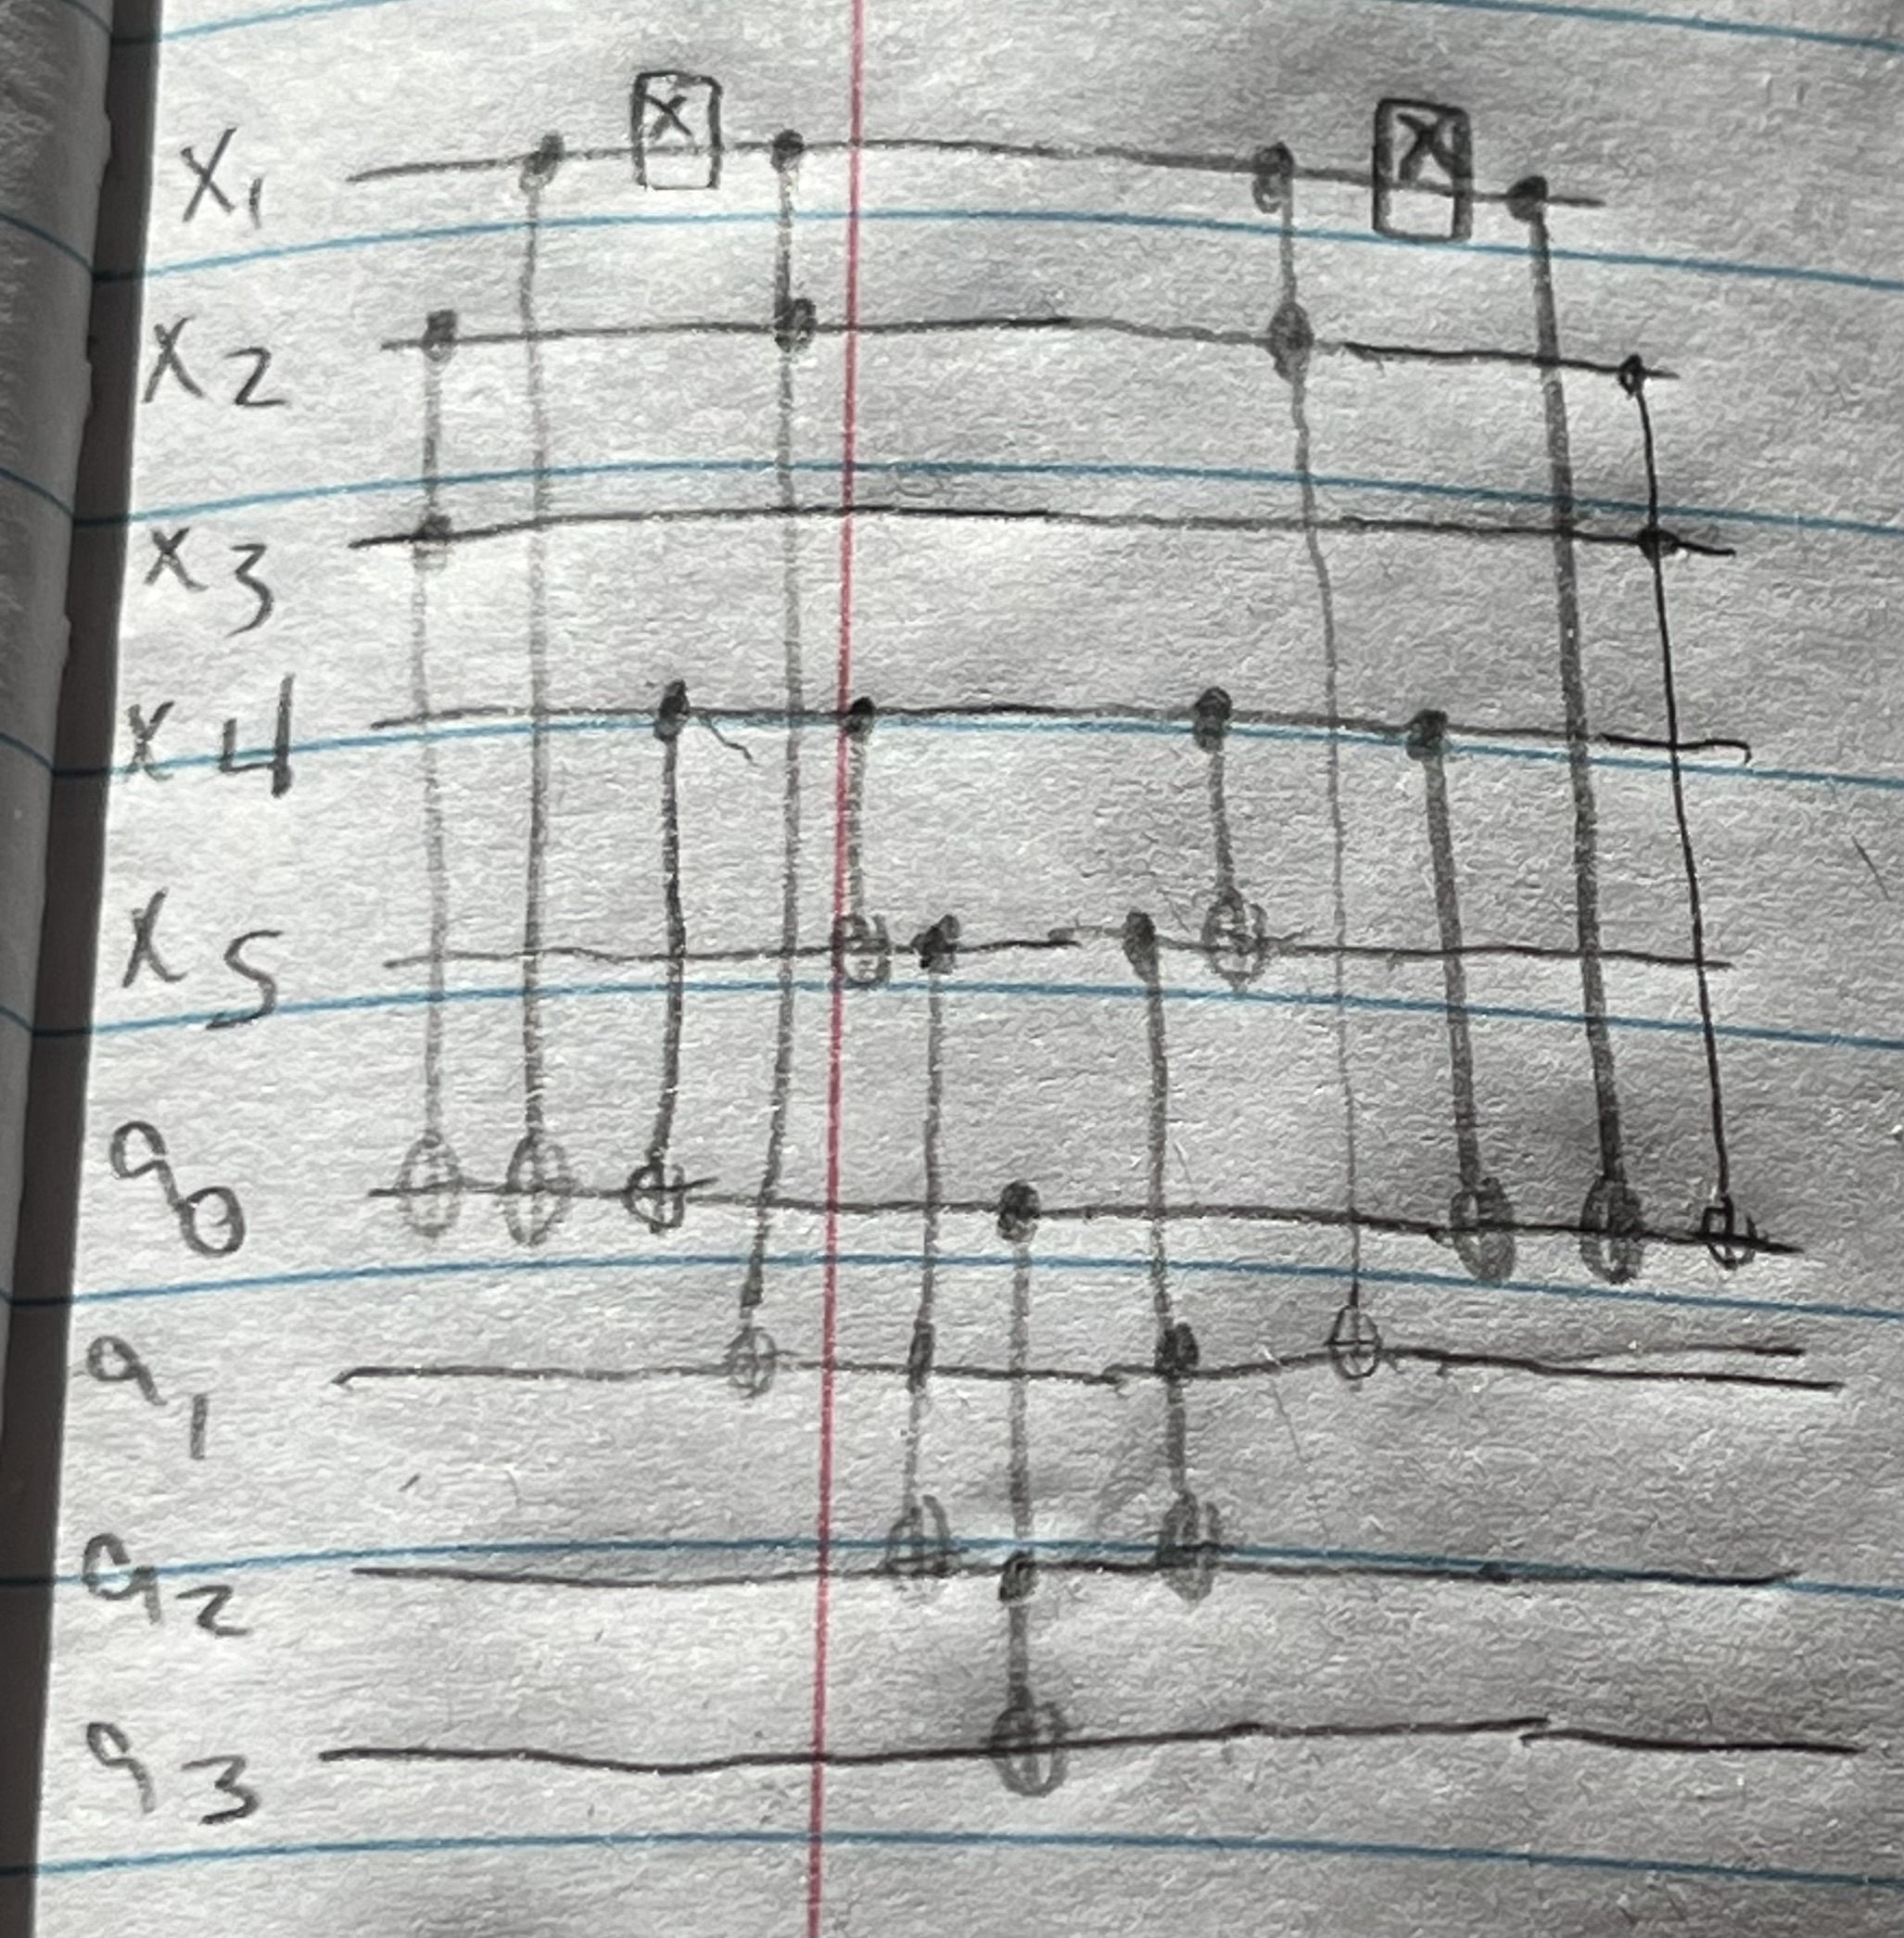 X
X
X1
X2
X3
X4
X5
q0
q1
q2
q3